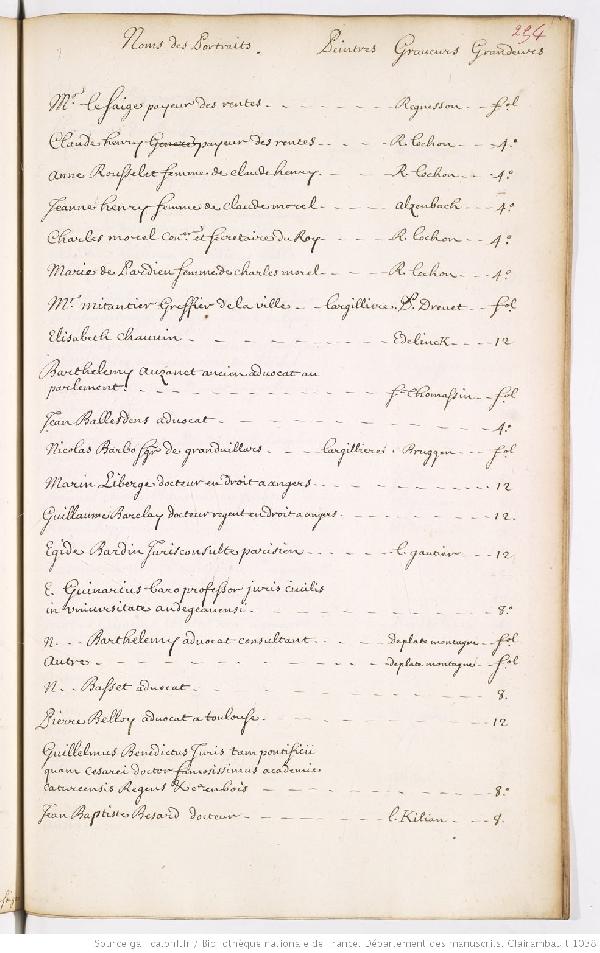 254
Noms des Portraits. Peintres Graueurs Grandeurs
Mr. le faige payeur des rentes - - - - Regnesson - - fol
Claude henry payeur des rentes - - - R. Lochon - - 4°
Anne Rousselet femme de claude henry - - - R. Lochon - - 4°
Jeanne henry femme de claude morel - - - alzenbach - - 4°
Charles morel Conr. et secretaire du Roy - - - R. Lochon - - 4°
Marie de Pardieu femme de charles morel - - - R. Lochon - - 4°
Mr. mitantier Greffier de la ville - - largilliere. P. Dreuet - - fol
Elisabeth Chauuin - - - - - Edelinck - - 12
Barthelemy Auzanet ancien aduocat au
parlement. - - - - - - fr. Thomassin - - fol
Jean Ballesdens aduocat - - - - - - 4°
Nicolas Barbo sgr de granduillars - - largillieres. Bruggen - - fol
Marin Liberge docteur en droit a angers - - - - - 12
Guillaume Barclay docteur regent en droit a angers - - - - 12.
Egide Bardin Jurisconsulte parisien - - - - l. gautier - - 12
E. Guinarius baro professor juris ciuilis
in vniuersitate andegauensi - - - - - - 8°
N. - - Barthelemy aduocat consultant - - - deplate montagne - fol
Autre - - - - - - deplate montagne - fol
N. - Basset aduocat - - - - - - 8.
Pierre Belloy aduocat a toulouse - - - - - 12
Guillelmus Benedictus Juris tam pontificii
quam cesarei doctor famosissimus academie
caturcensis Regens - - - - - 8°
Jean Baptiste Besard docteur - - - - l. Kilian - - 8.
Source gallica.bnf.fr / Bibliothèque nationale de France. Département des manuscrits. Clairambault 1038